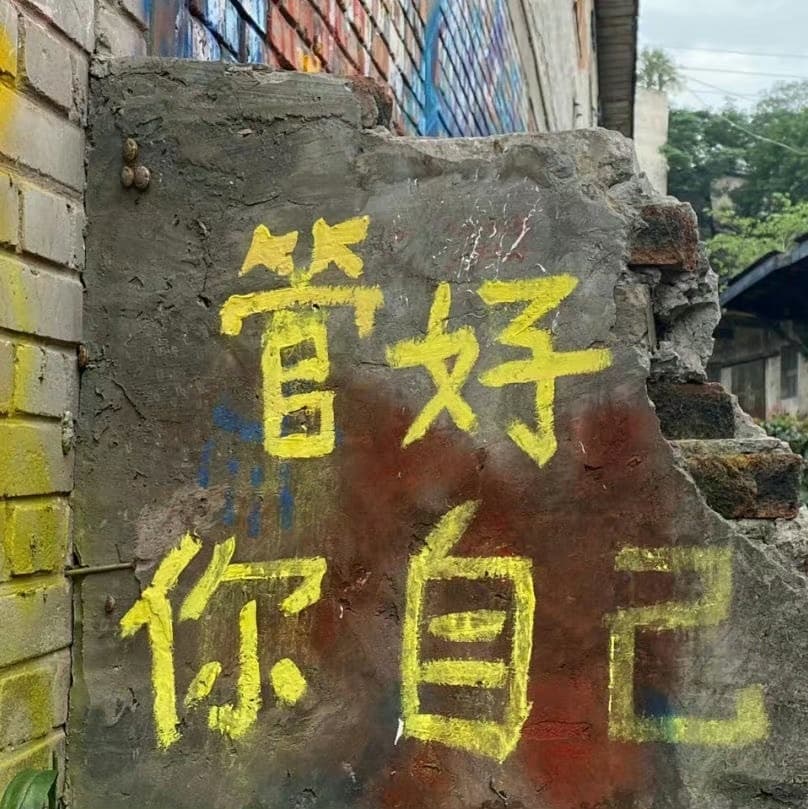 管好
你自己